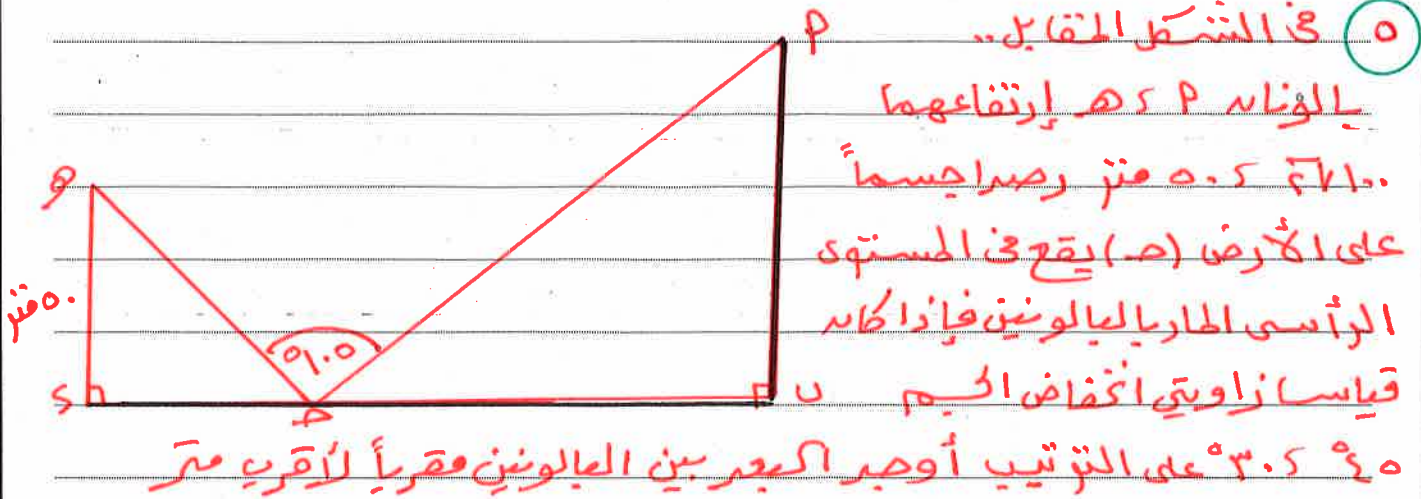 ٥ في الشكل المقابل..
بالونان م ، هـ إرتفاعهما
٥٠ متر رصدا جسماً
على الأرض (حـ) يقع في المستوى
الرأسي المار بالبالونين فإذا كان
قياسا زاويتي انخفاض الجسم
٤٥° ، ٣٠° على الترتيب أوجد البعد بين البالونين مقرباً لأقرب متر
م
هـ
٥٠ متر
١٠٥°
ء
حـ
ب